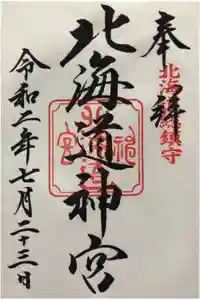 奉拝
北海道総鎮守
北海道神宮
令和二年七月二十三日